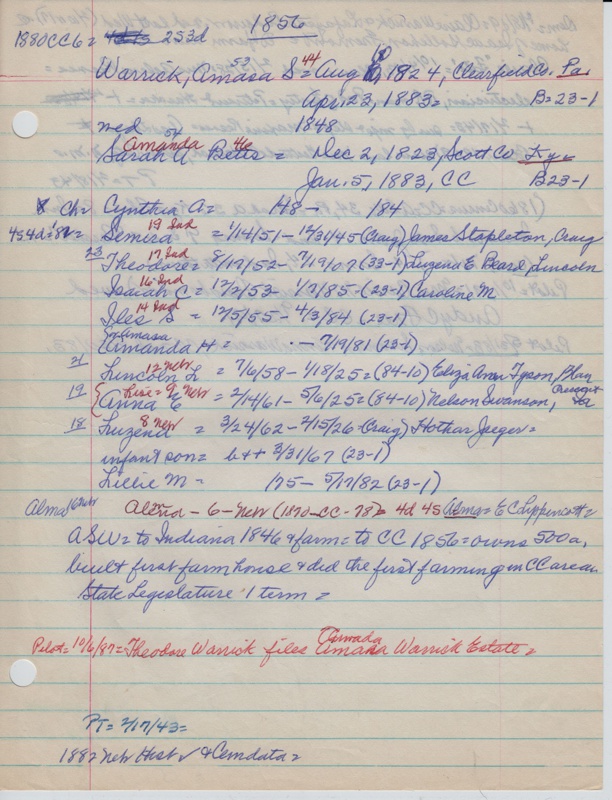 1856
1880CC6= 253d
52 44 10
Warrick, Amasa S = Aug 1824, Clearfield Co. Pa
Apr. 23, 1883= B=23-1
med 1848
Amanda 54 46
Sarah A Betts = Dec 2, 1823, Scott Co Ky
Jan. 5, 1883, CC B23-1
Ch= Cynthia A= '48 - '84
19 Ind
454d='82= Semira = 1/14/51 - 12/31/45 (Craig) James Stapleton, Craig
23 17 Ind
Theodore = 8/19/52 - 7/19/07 (33-1) Luzena E Beard, Lincoln
16 Ind
Isaiah C = 12/2/53 1/7/85 - (23-1) Caroline M
14 Ind
Iles S = 12/5/55 - 4/3/84 (23-1)
Amasa
Amanda H = - 7/19/81 (23-1)
21 12 Nebr
Lincoln L = 7/6/58 - 1/18/25 = (84-10) Eliza Ann Tyson, Blan
19 Rose = 9 Nebr
Anna E = 2/14/61 - 5/6/25 = (84-10) Nelson Swanson,
18 8 Nebr
Luzena = 3/24/62 - 2/15/26 - Craig) Hothar Jaeger=
infant son = b++ 3/31/67 (23-1)
Lillie M = '75 - 5/17/82 (23-1)
Alma 6 Nebr Alma - 6 - Nebr (1870-CC-78)= 4d 45 Alma = E C Lippincott=
ASW = to Indiana 1846 & farm = to CC 1856 = owns 500a,
built first farm house & did the first farming in CC area
State Legislature 1 term =
Pilot= 10/6/87 = Theodore Warrick files Amanda Warrick Estate =
PT= 2/17/43=
1882 Nebr Hist ✓ & Cemdata =